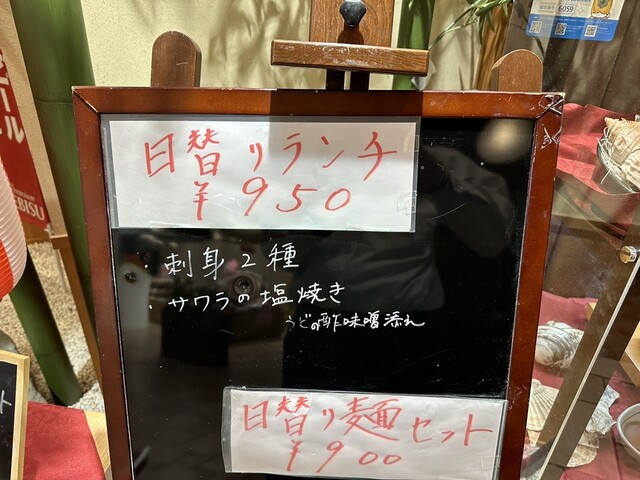 日替りランチ
¥950
・刺身2種
・サワラの塩焼き
うどの酢味噌添え
日替り麺セット
¥900
6059
ール
EBISU
ット